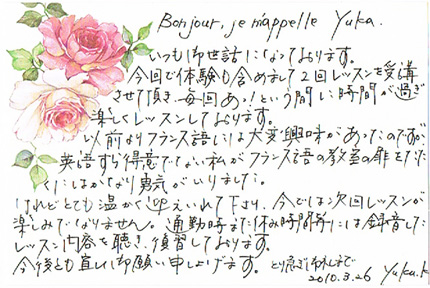 Bonjour, je m'appelle Yuka.
いつも御世話になっております。
今回で体験も含めまして2回レッスンを受講
させて頂き、毎回あ!という間に時間が過ぎ
楽しくレッスンしております。
以前よりフランス語には大変興味があったのですが
英語すら得意でない私がフランス語の教室の扉をたた
くにはかなり勇気がいりました。
けれどとても温かく迎えいれて下さり、今では次回レッスンが
楽しみでなりません。通勤時また休み時間等には録音した
レッスン内容を聴き、復習しております。
今後とも宜しく御願い申し上げます。とり急ぎ御礼まで
2010.3.26 Yuka.K